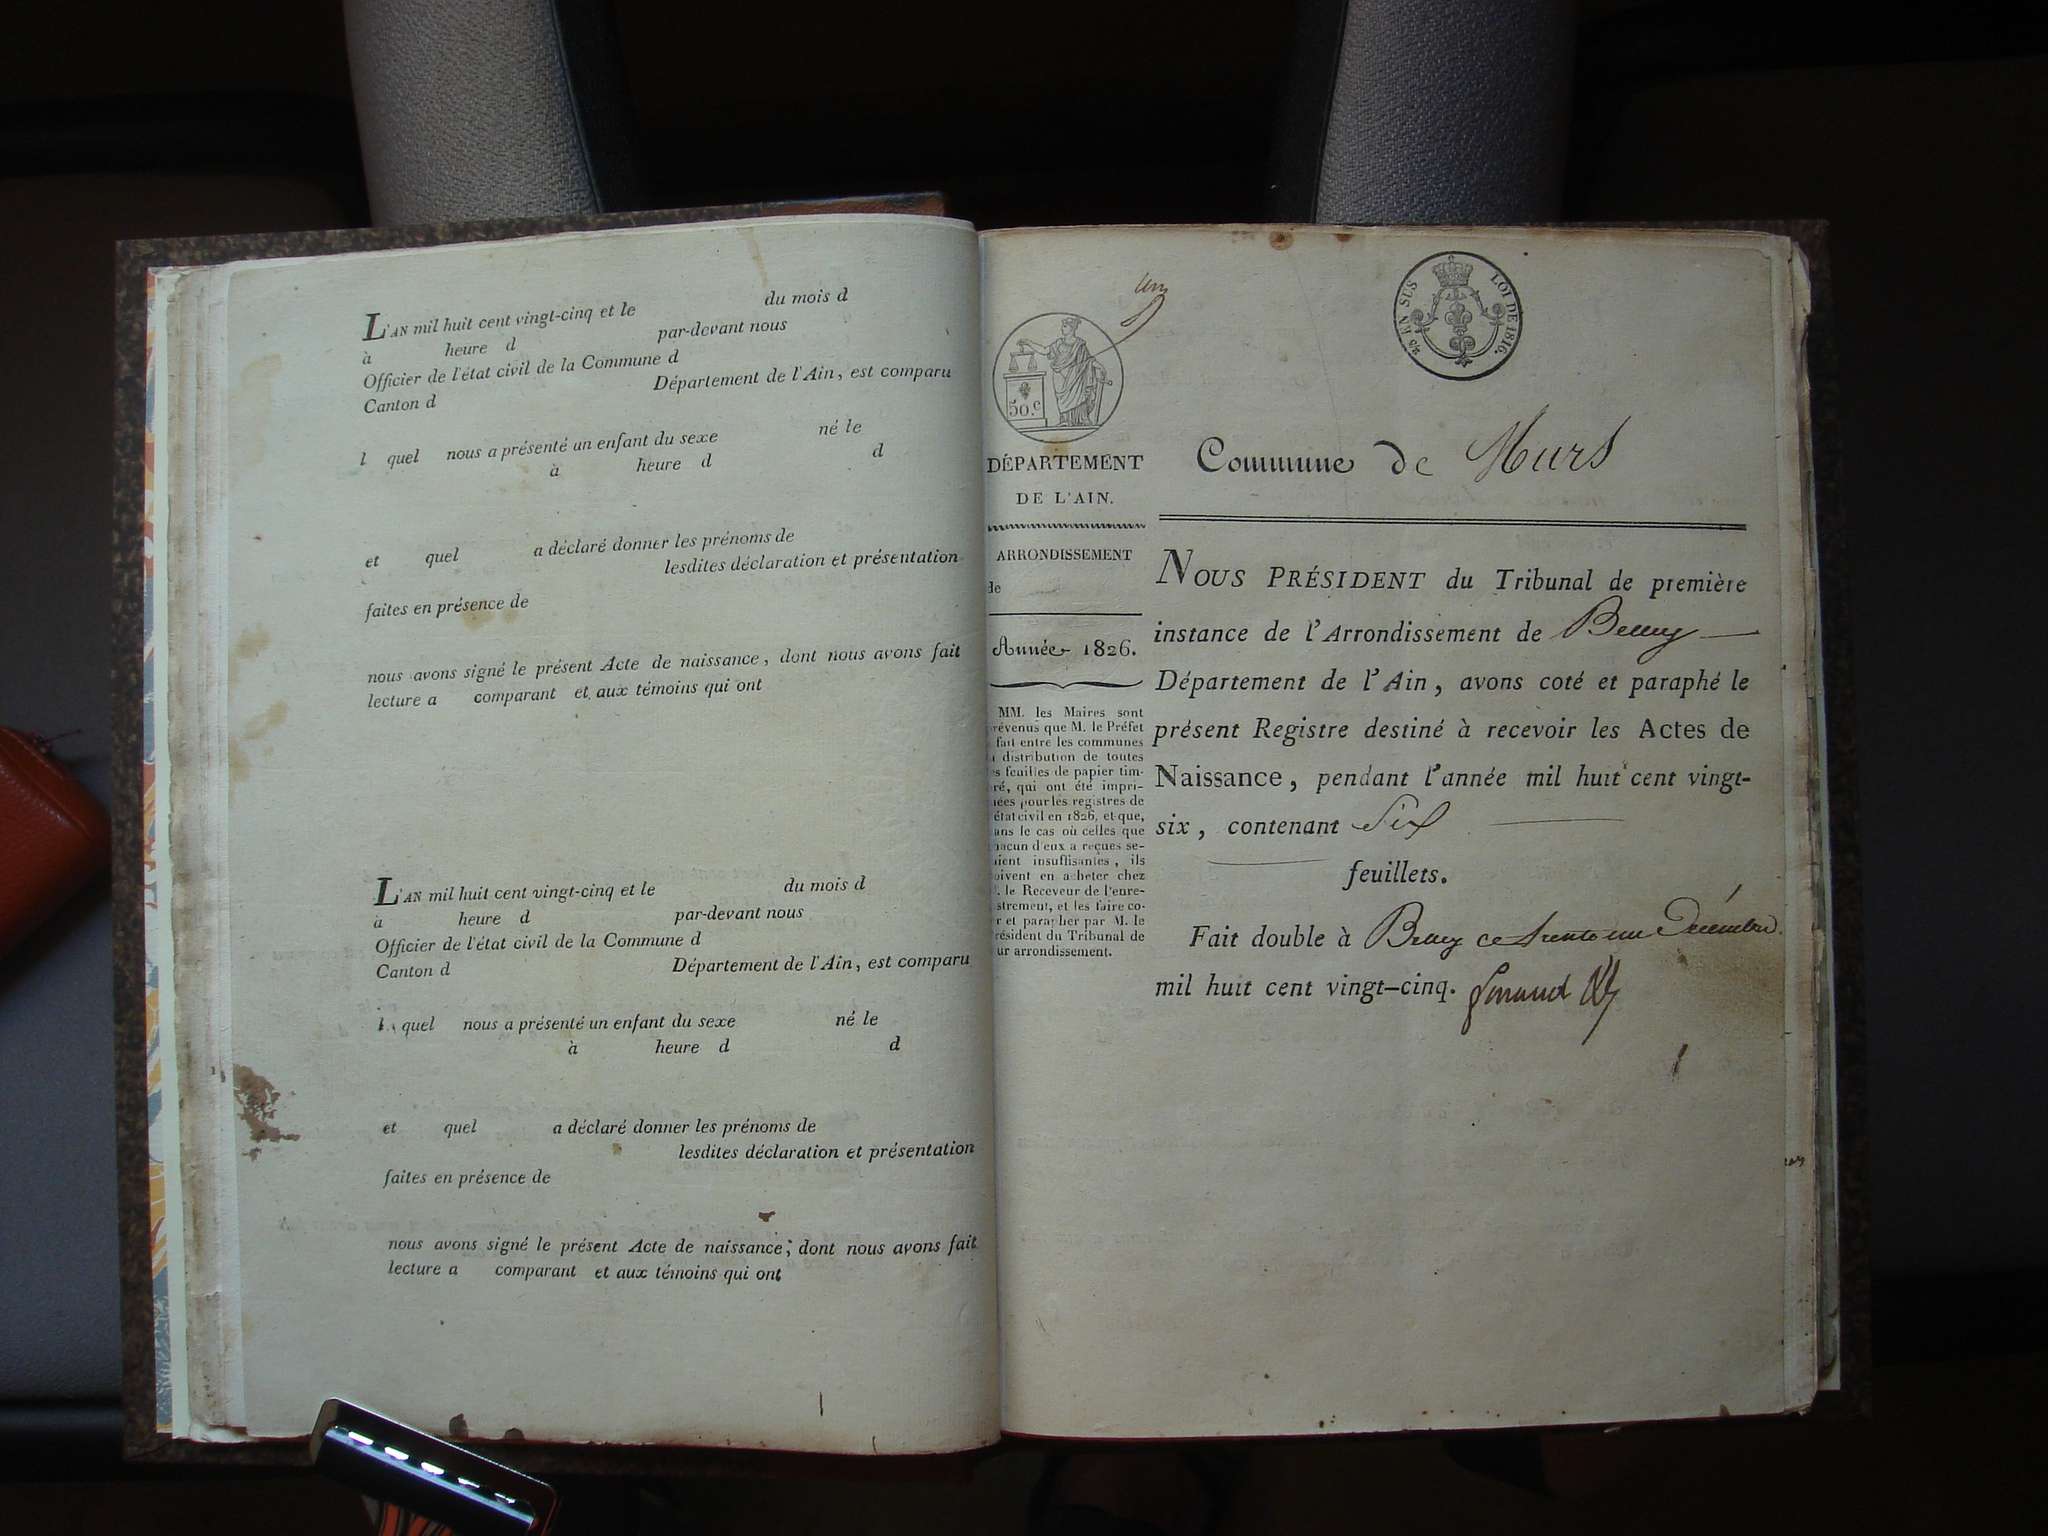 L'AN mil huit cent vingt-cinq et le du mois d
à heure d par-devant nous
Officier de l'état civil de la Commune d
Canton d Département de l'Ain, est comparu
l quel nous a présenté un enfant du sexe né le
à heure d d
et quel a déclaré donner les prénoms de
lesdites déclaration et présentation
faites en présence de
nous avons signé le présent Acte de naissance, dont nous avons fait
lecture a comparant et aux témoins qui ont
L'AN mil huit cent vingt-cinq et le du mois d
à heure d par-devant nous
Officier de l'état civil de la Commune d
Canton d Département de l'Ain, est comparu
l quel nous a présenté un enfant du sexe né le
à heure d d
et quel a déclaré donner les prénoms de
lesdites déclaration et présentation
faites en présence de
nous avons signé le présent Acte de naissance, dont nous avons fait
lecture a comparant et aux témoins qui ont
EN SUS LOI DE 1816.
50.c
DÉPARTEMENT
DE L'AIN.
ARRONDISSEMENT
de
Année 1826.
MM. les Maires sont
révenus que M. le Préfet
fait entre les communes
distribution de toutes
es feuilles de papier tim-
ré, qui ont été impri-
mées pour les registres de
état civil en 1826, et que,
ans le cas où celles que
hacun d'eux a reçues se-
aient insuffisantes, ils
oivent en acheter chez
. le Receveur de l'enre-
istrement, et les faire co-
r et parapher par M. le
résident du Tribunal de
ur arrondissement.
Commune de Murs
NOUS PRÉSIDENT du Tribunal de première
instance de l'Arrondissement de Belley
Département de l'Ain, avons coté et paraphé le
présent Registre destiné à recevoir les Actes de
Naissance, pendant l'année mil huit cent vingt-
six, contenant Six
feuillets.
Fait double à Belley ce trente un Décembre.
mil huit cent vingt-cinq.